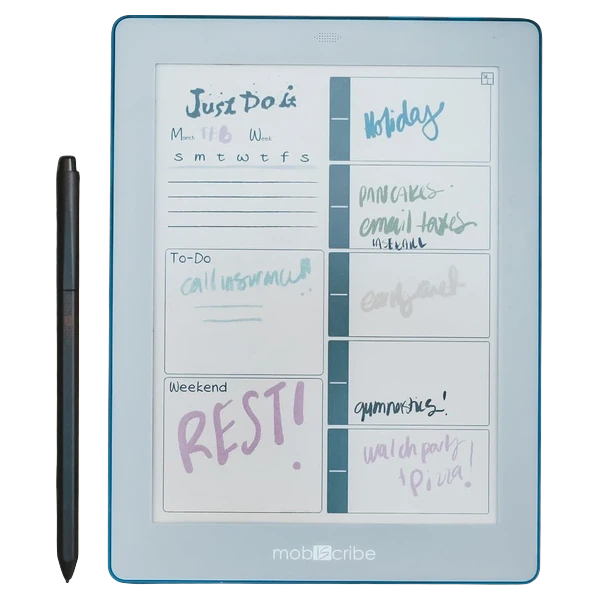 Just Do it
Month FEB Week
s m t w t f s
To-Do
call insurance!!
Weekend
REST!
Holiday
PANCAKES
email taxes
BASEBALL
early out
gymnastics!
watch party
+ pizza!
mobiscribe